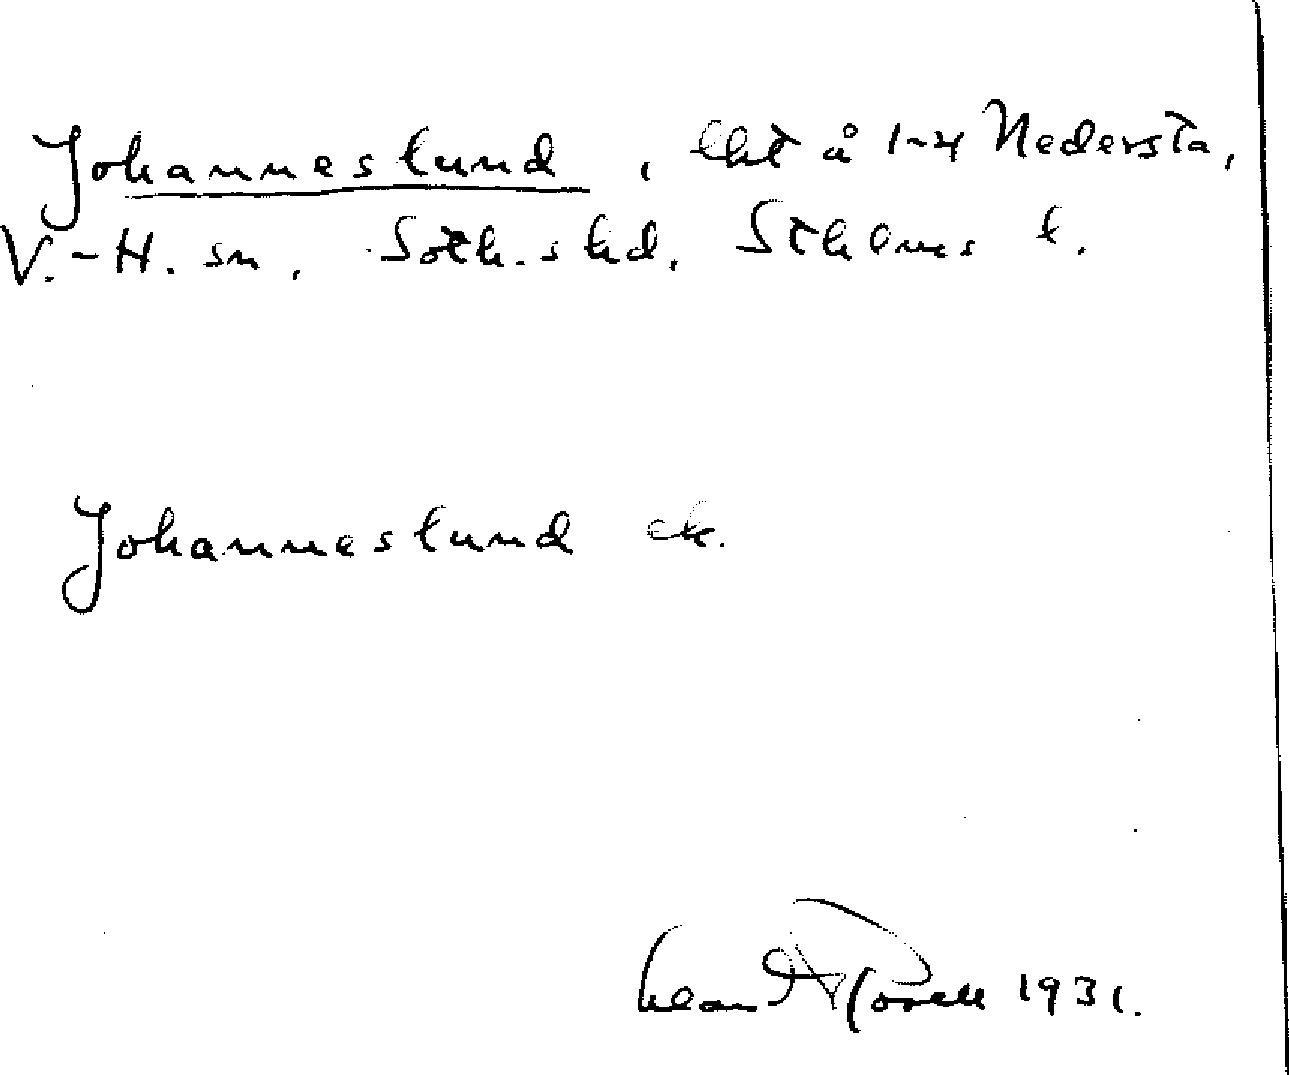 Johanneslund, lht å 1-4 Nedersta,
V.-H. sn, Soth.s hd, Sthlms l.
Johanneslund ek.
1931.